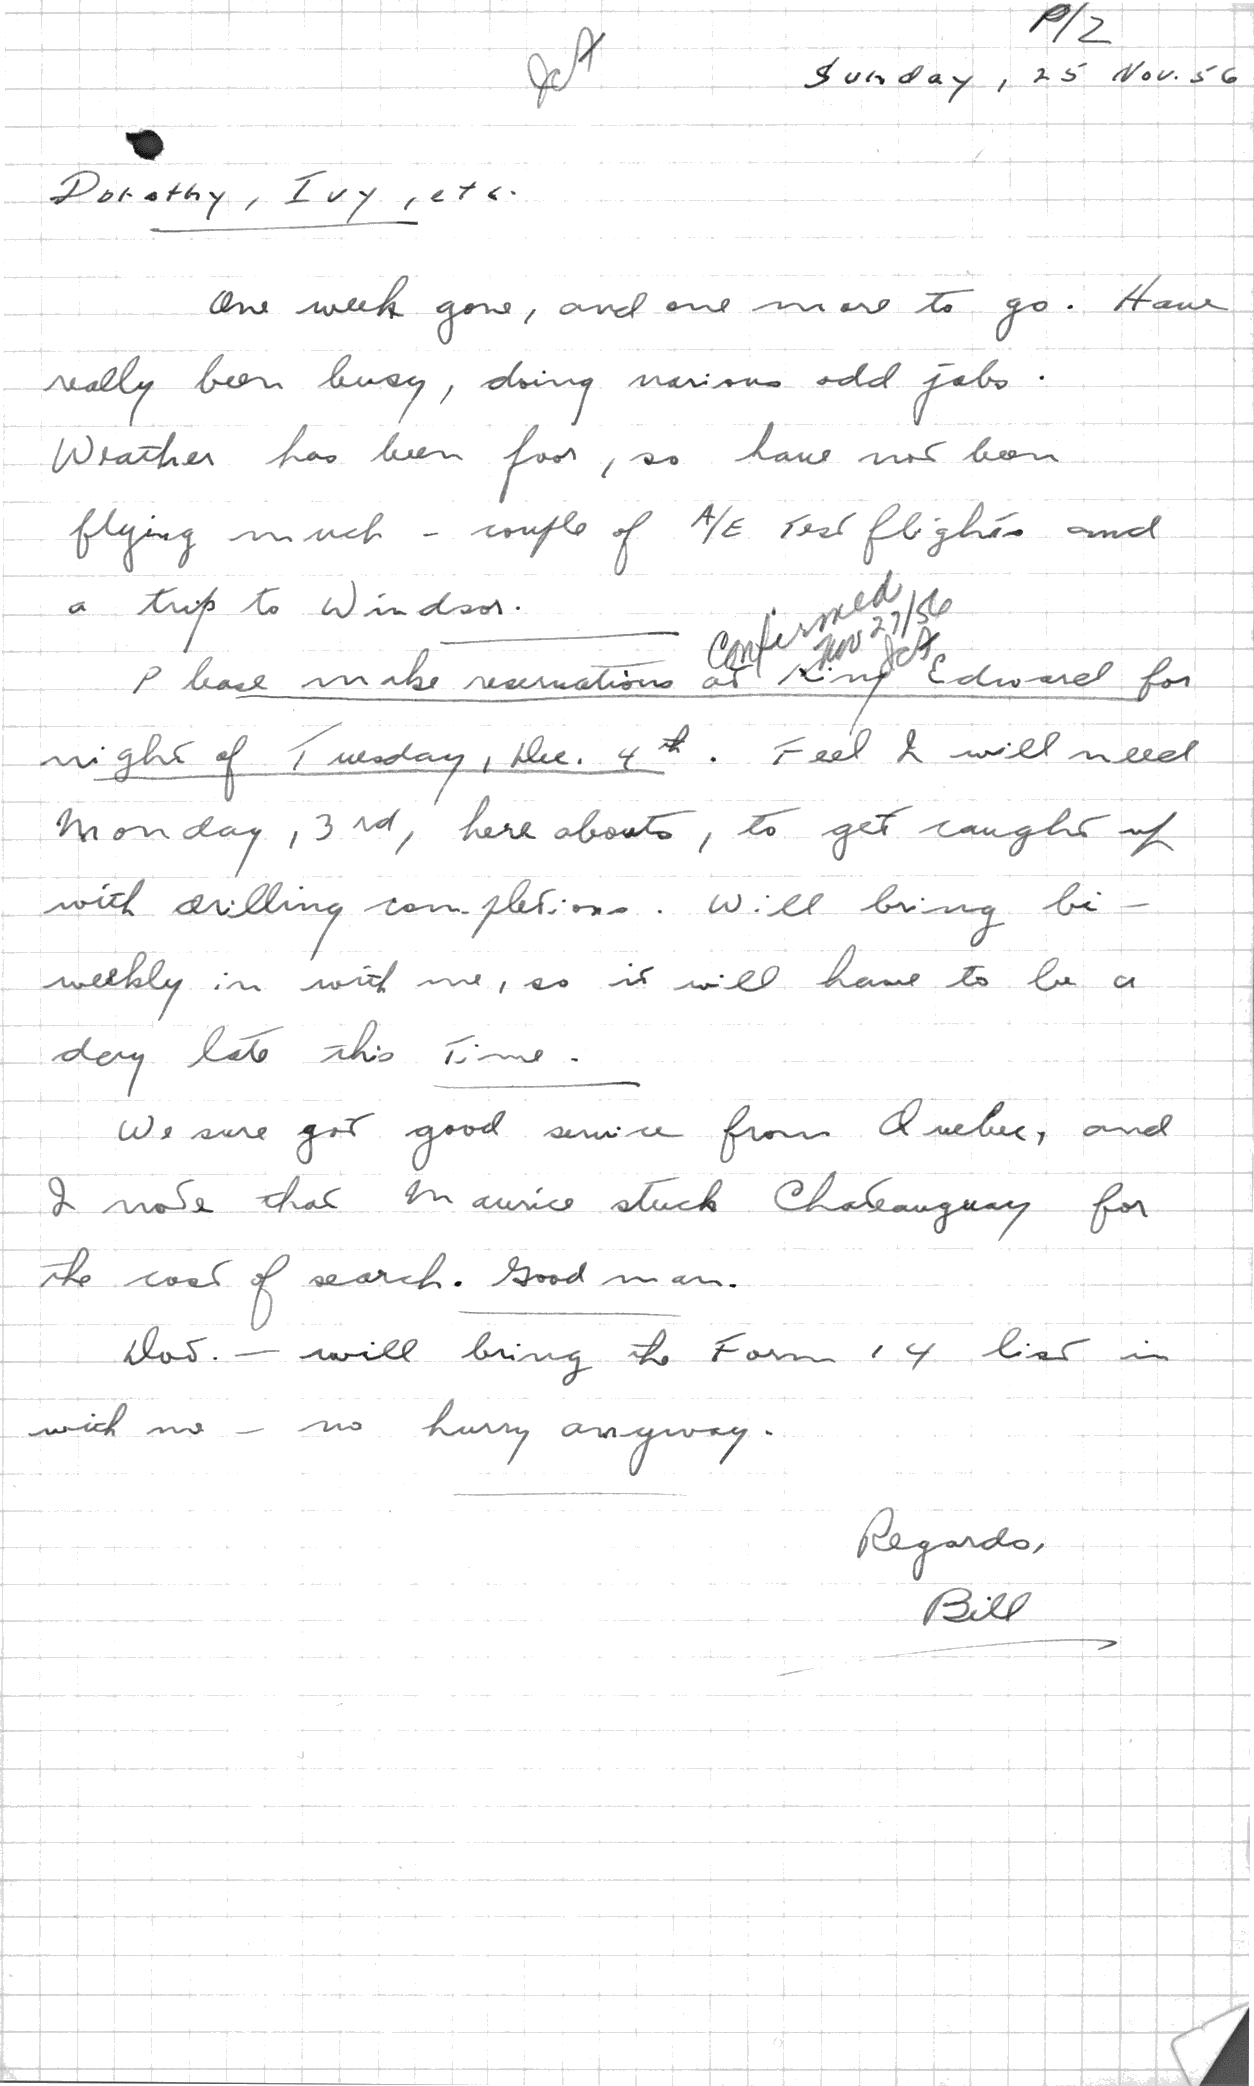 P/2
Sunday, 25 Nov. 56
Dorothy, Ivy, etc.
One week gone, and one more to go. Have
really been busy, doing various odd jobs.
Weather has been poor, so have not been
flying much - couple of A/E test flights and
a trip to Windsor.
Confirmed
Nov 27/56
Please make reservations at King Edward for
night of Tuesday, Dec. 4th. Feel I will need
Monday, 3rd, here abouts, to get caught up
with drilling completions. Will bring bi-
weekly in with me, so it will have to be a
day late this time.
We sure got good service from Quebec, and
I note that Maurice stuck Chateauguay for
the cost of search. Good man.
Dot. - will bring the Form 14 list in
with me - no hurry anyway.
Regards,
Bill